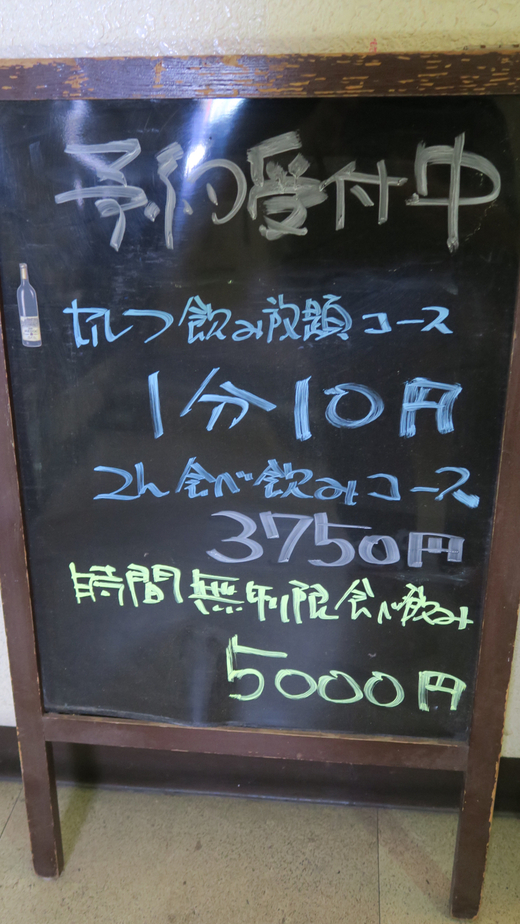 予約受付中
セルフ飲み放題コース
1分10円
2h食べ飲みコース
3750円
時間無制限食べ飲み
5000円